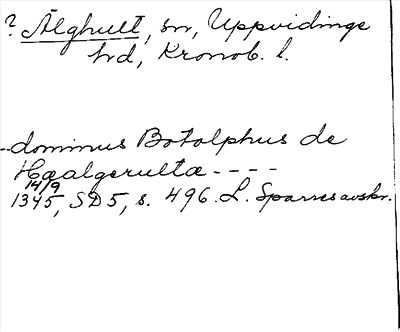 ? Älghult, sn, Uppvidinge
hd, Kronob. l.
--dominus Botolphus de
Haalgerulta ----
14/9
1345, SD5, s. 496. L. Sparres avskr.